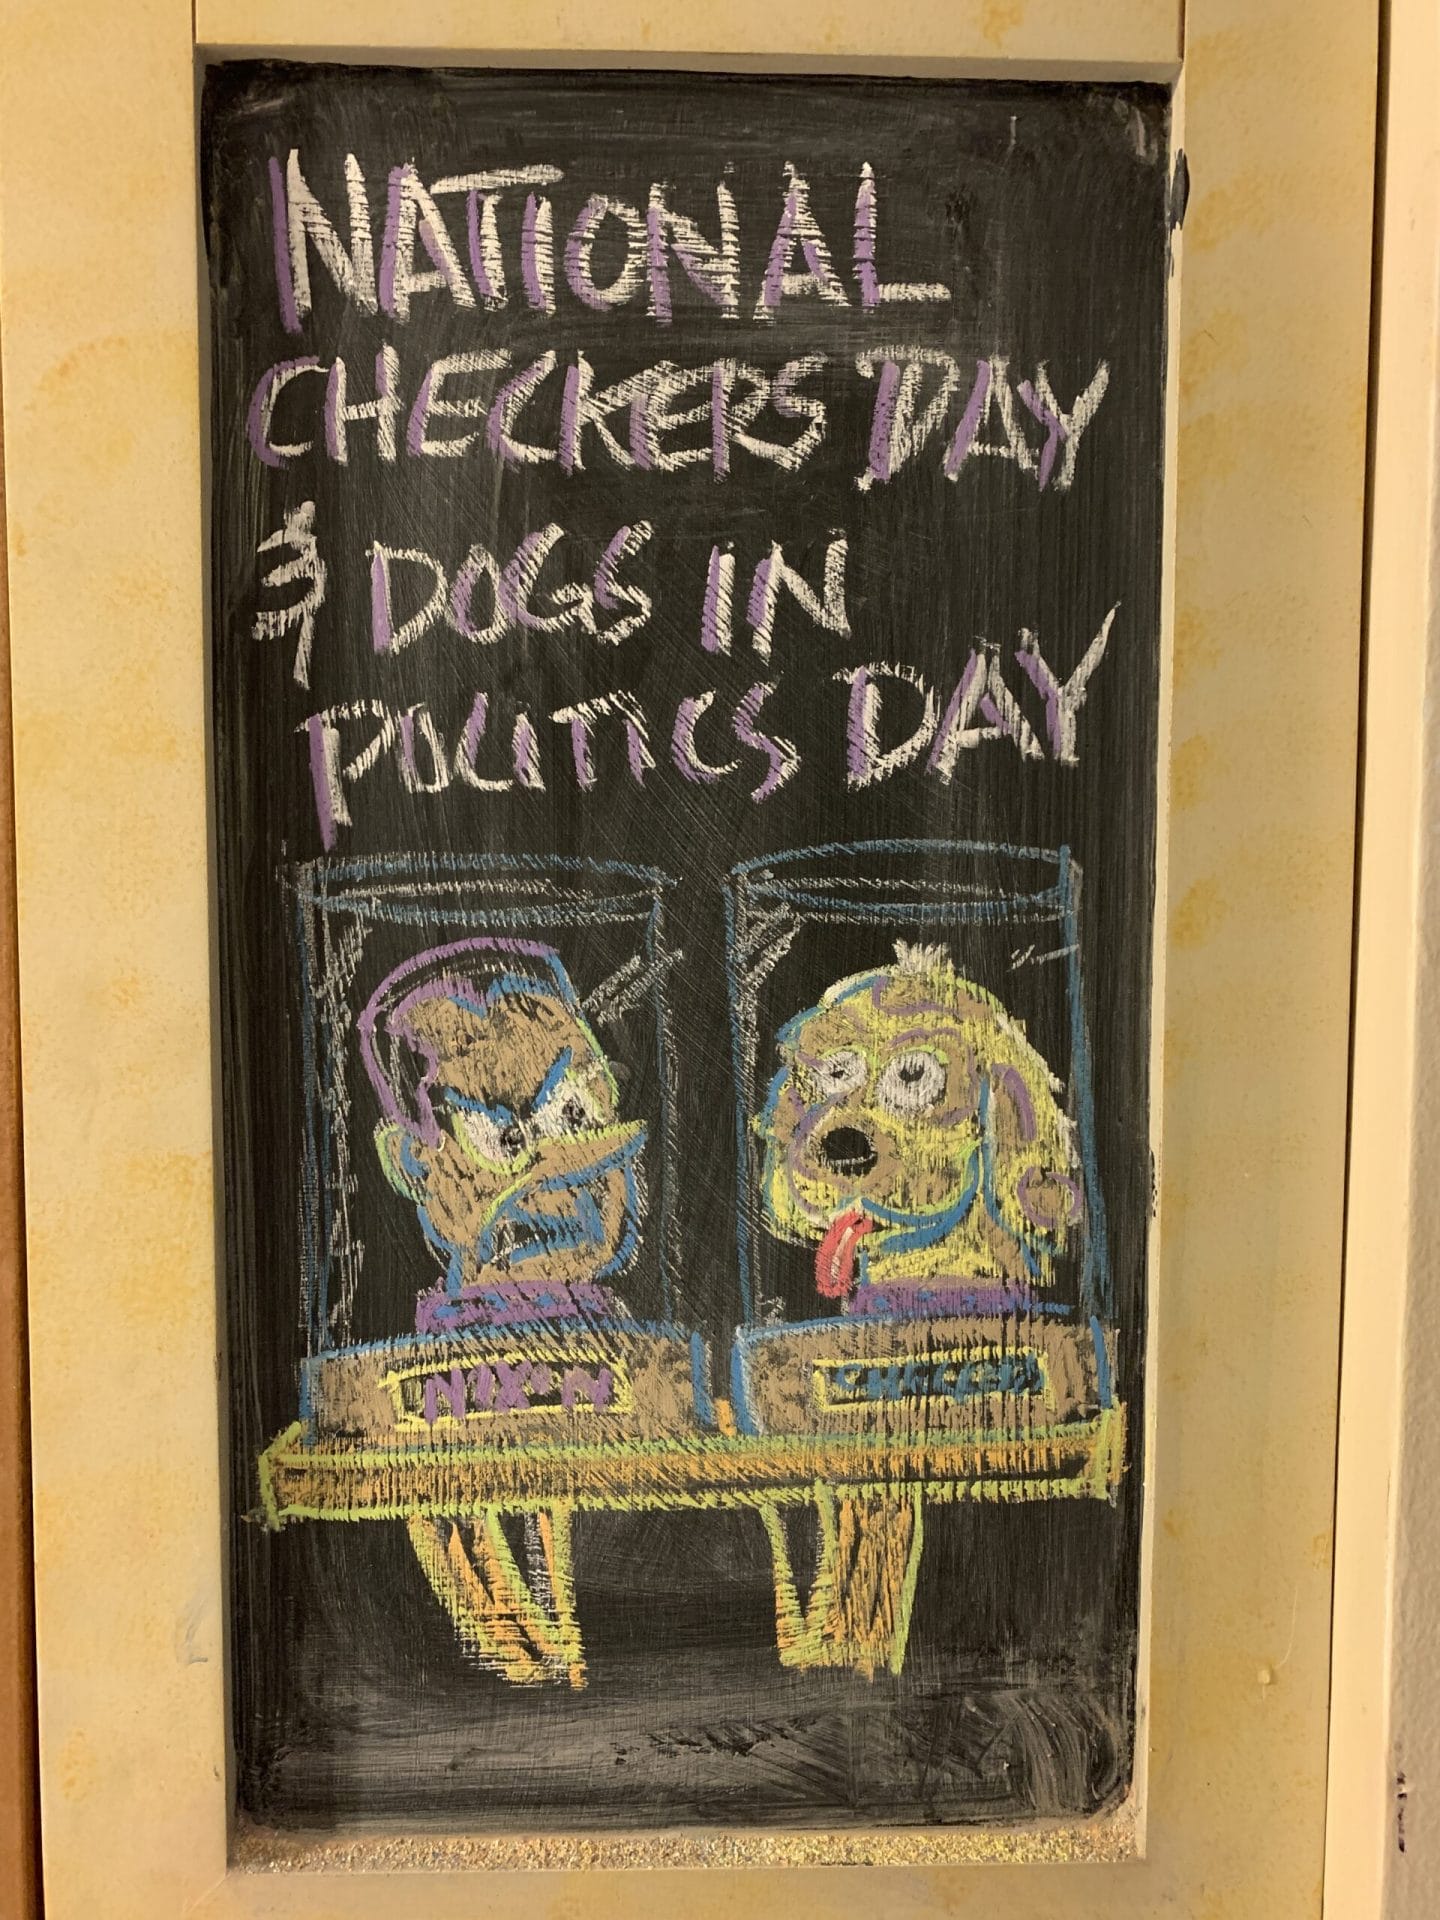 NATIONAL
CHECKERS DAY
& DOGS IN
POLITICS DAY
NIXON
CHECKERS